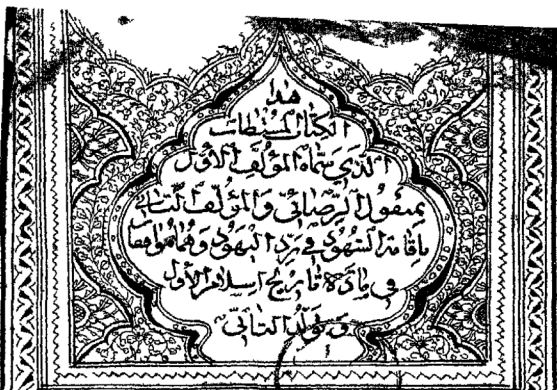 هذا
الكتاب المستطاب
الذي سماه المؤلف الاول
بمنقول الرضائي والمؤلف الثاني
باقامة الشهود في رد اليهود
في مادة تاريخ اسلام الاول
وتولد الثاني